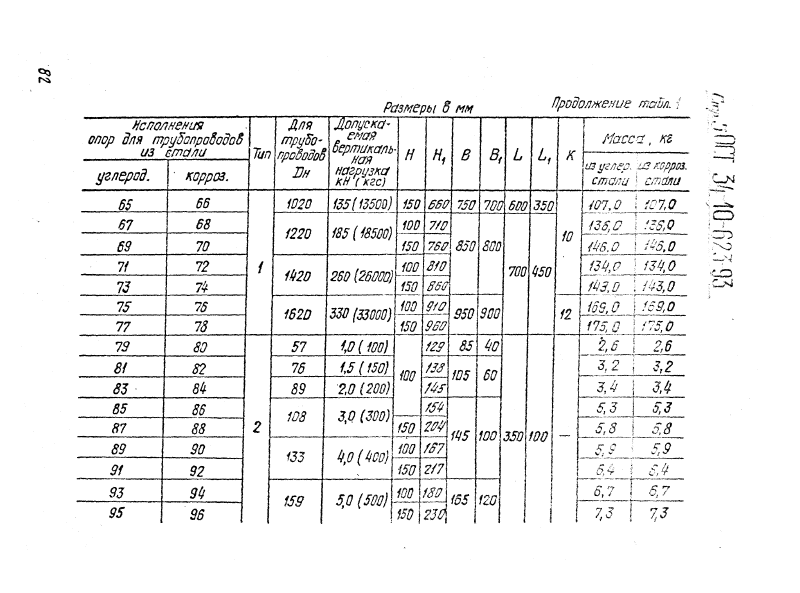 82
Размеры в мм
Продолжение табл. 1
Исполнения опор для трубопроводов из стали | Тип | Для трубопроводов Dн | Допускаемая вертикальная нагрузка кН (кгс) | H | H₁ | B | B₁ | L | L₁ | K | Масса, кг
углерод. | корроз. | из углер. стали | из корроз. стали
65 66 1 1020 135 (13500) 150 660 750 700 600 350 10 107,0 107,0
67 68 1220 185 (18500) 100 710 850 800 700 450 136,0 136,0
69 70 150 760 146,0 146,0
71 72 1420 260 (26000) 100 810 134,0 134,0
73 74 150 860 143,0 143,0
75 76 1620 330 (33000) 100 910 950 900 12 169,0 169,0
77 78 150 960 175,0 175,0
79 80 2 57 1,0 (100) 100 129 85 40 350 100 — 2,6 2,6
81 82 76 1,5 (150) 138 105 60 3,2 3,2
83 84 89 2,0 (200) 145 3,4 3,4
85 86 108 3,0 (300) 154 145 100 5,3 5,3
87 88 150 204 5,8 5,8
89 90 133 4,0 (400) 100 167 5,9 5,9
91 92 150 217 6,4 6,4
93 94 159 5,0 (500) 100 180 165 120 6,7 6,7
95 96 150 230 7,3 7,3
ОСТ 34-10-623-93